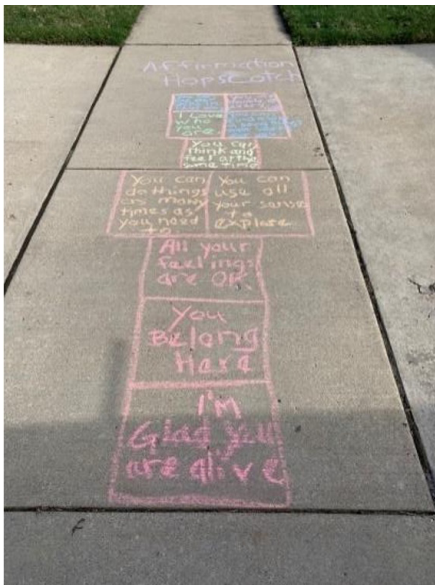 Affirmation
Hopscotch
I Love
who
you
are
You can
think and
feel at the
same time
You can
do things
as many
times as
you need
to
You can
use all
your senses
to
explore
All your
feelings
are OK
You
Belong
Here
I'M
Glad you
are alive